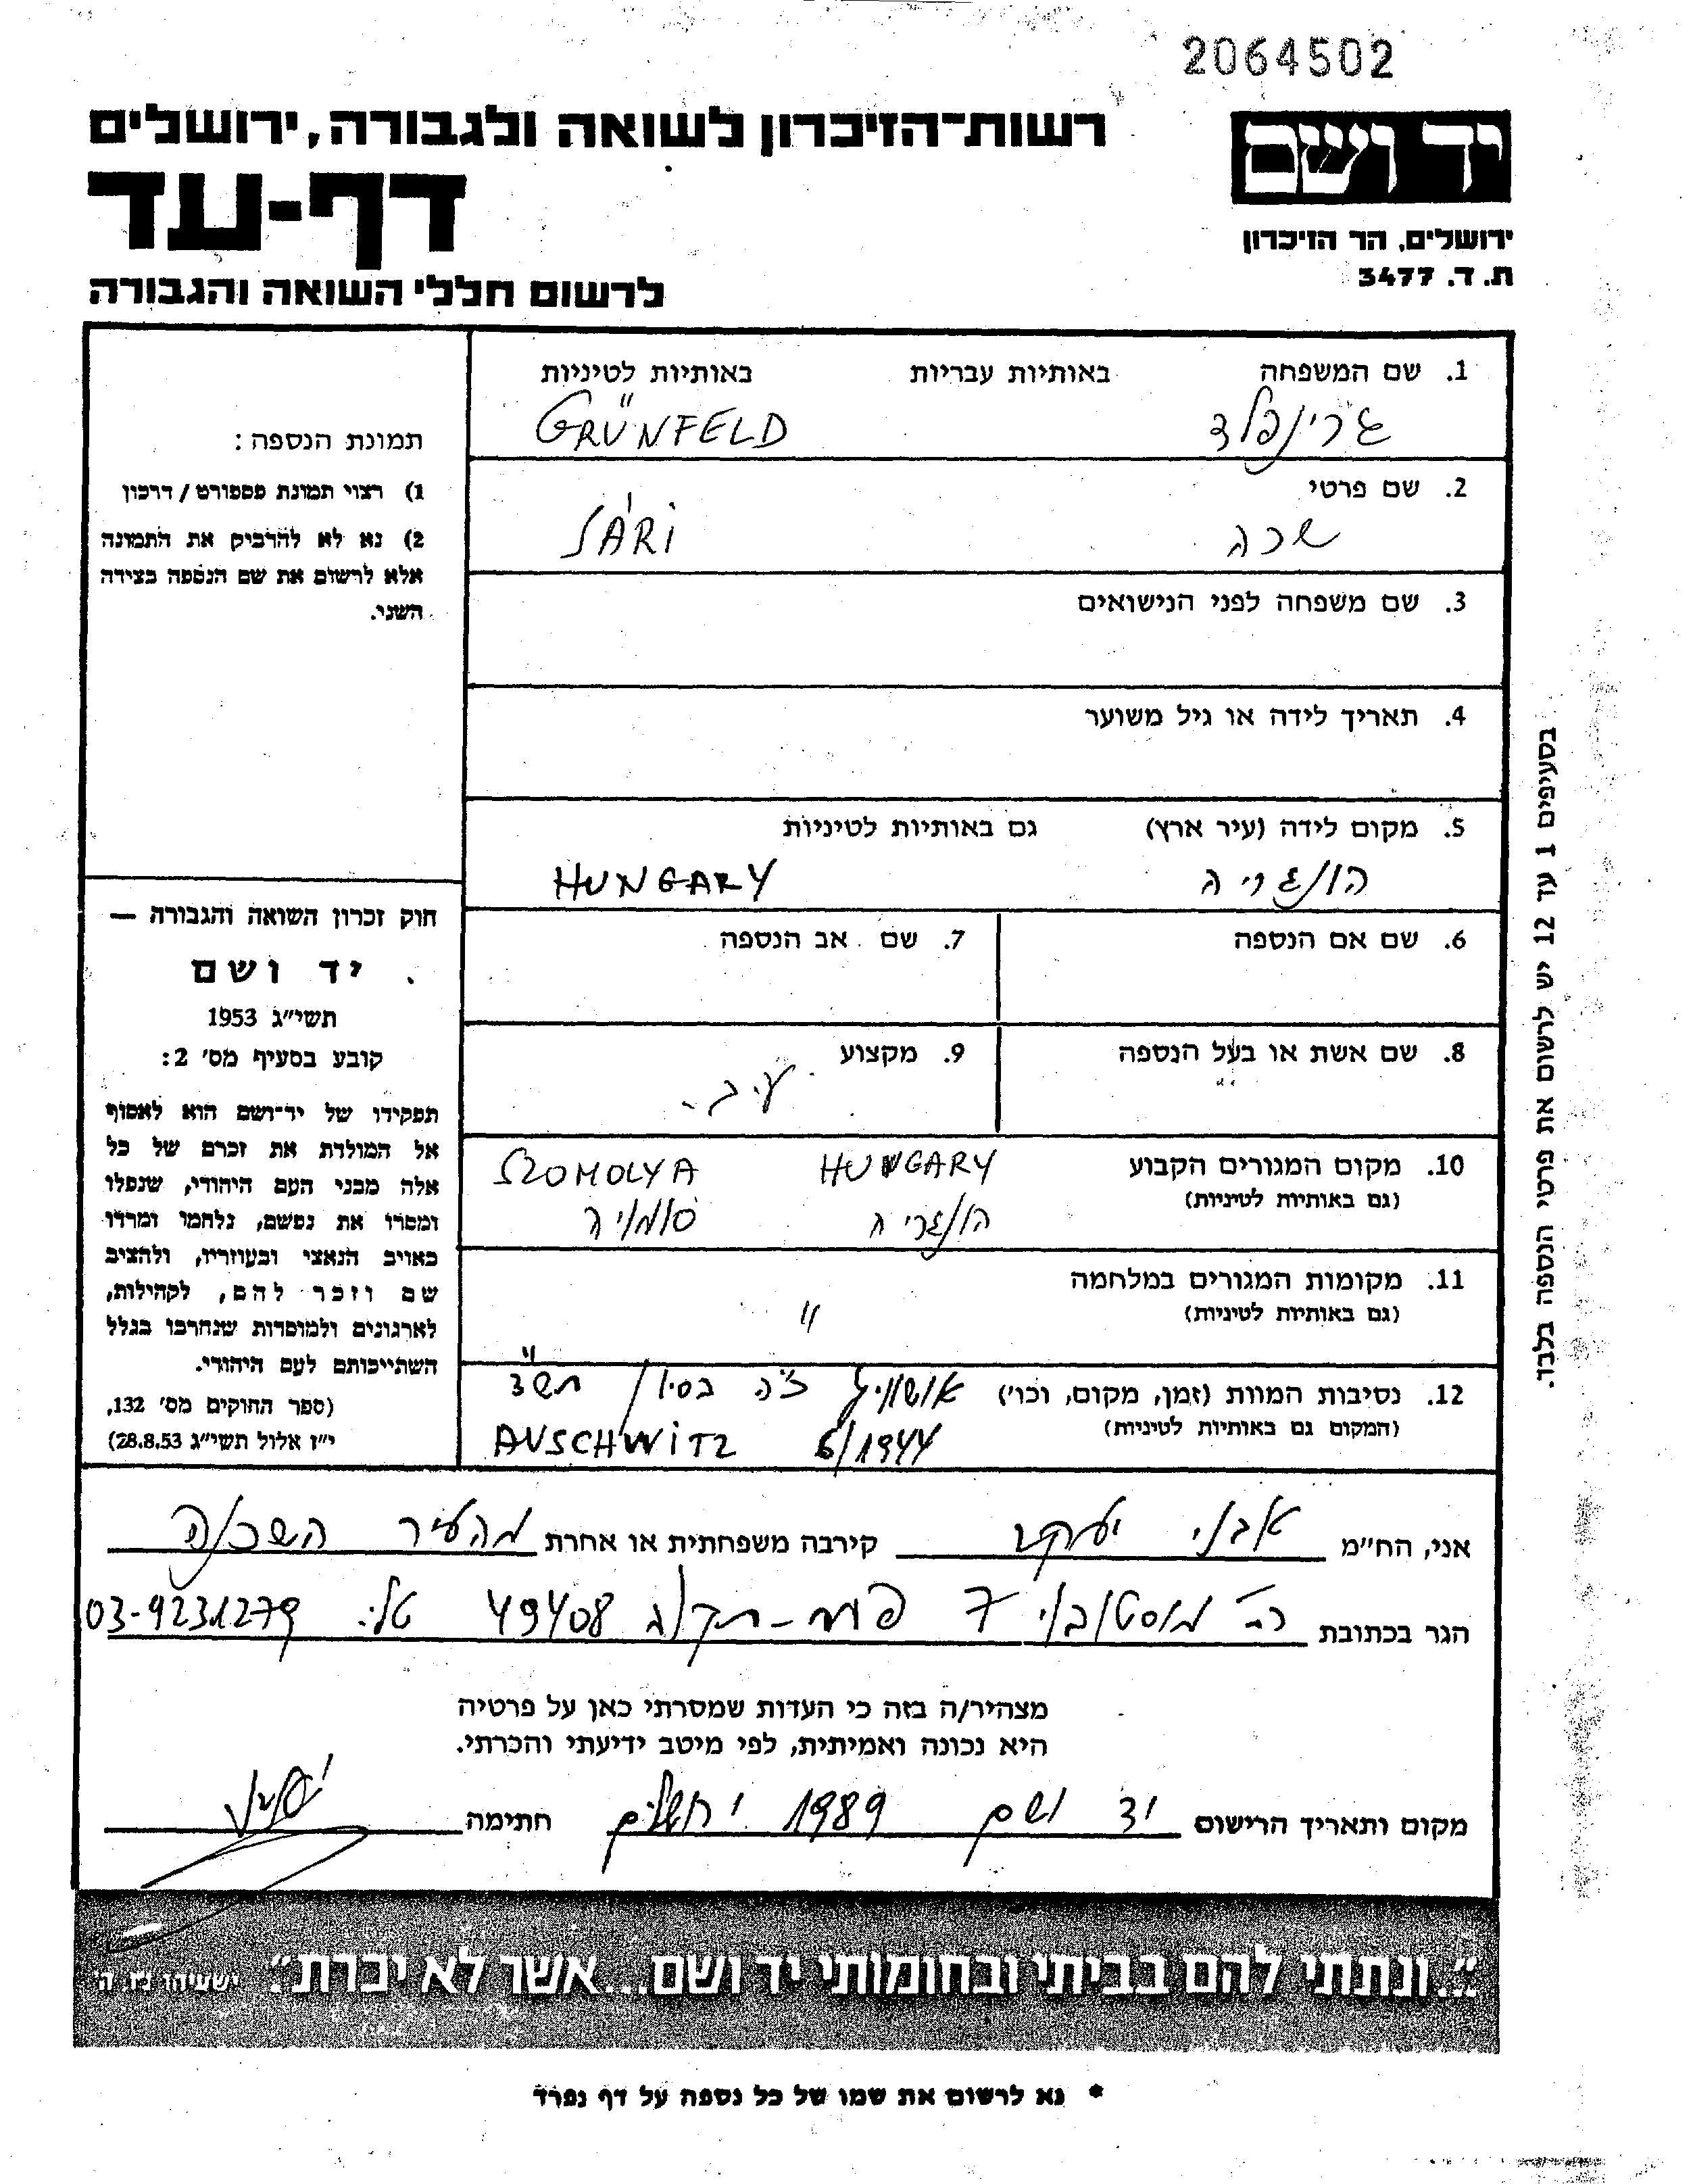 2064502
רשות-הזיכרון לשואה ולגבורה, ירושלים
יד ושם
דף-עד
ירושלים, הר הזיכרון
ת.ד. 3477
לרשום חללי השואה והגבורה
1. שם המשפחה באותיות עבריות באותיות לטיניות
גרינפלד GRÜNFELD
2. שם פרטי
שרה SÁRI
3. שם משפחה לפני הנישואים
4. תאריך לידה או גיל משוער
5. מקום לידה (עיר ארץ) גם באותיות לטיניות
הונגריה HUNGARY
6. שם אם הנספה 7. שם אב הנספה
8. שם אשת או בעל הנספה 9. מקצוע
10. מקום המגורים הקבוע HUNGARY SZOMOLYA
(גם באותיות לטיניות) הונגריה סומויה
11. מקומות המגורים במלחמה
(גם באותיות לטיניות) "
12. נסיבות המוות (זמן, מקום, וכו') אושויץ כ"ה בסיון תש"ד
(המקום גם באותיות לטיניות) 6/1944 AUSCHWITZ
תמונת הנספה:
1) רצוי תמונת פספורט / דרכון
2) נא לא להדביק את התמונה
אלא לרשום את שם הנספה בצידה
השני.
חוק זכרון השואה והגבורה —
יד ושם
תשי"ג 1953
קובע בסעיף מס' 2:
תפקידו של יד-ושם הוא לאסוף
אל המולדת את זכרם של כל
אלה מבני העם היהודי, שנפלו
ומסרו את נפשם, נלחמו ומרדו
באויב הנאצי ובעוזריו, ולהציב
שם וזכר להם, לקהילות,
לארגונים ולמוסדות שנחרבו בגלל
השתייכותם לעם היהודי.
(ספר החוקים מס' 132,
י"ז אלול תשי"ג 28.8.53)
בסעיפים 1 עד 12 יש לרשום את פרטי הנספה בלבד.
אני, הח"מ אבני יעקב קירבה משפחתית או אחרת מהעיר השכנה
הגר בכתובת רח' 7 פתח-תקוה 49408 טל: 03-9231279
מצהיר/ה בזה כי העדות שמסרתי כאן על פרטיה
היא נכונה ואמיתית, לפי מיטב ידיעתי והכרתי.
מקום ותאריך הרישום יד ושם 1989 ירושלים חתימה
"..ונתתי להם בביתי ובחומותי יד ושם...אשר לא יכרת". ישעיהו נו ה'
* נא לרשום את שמו של כל נספה על דף נפרד